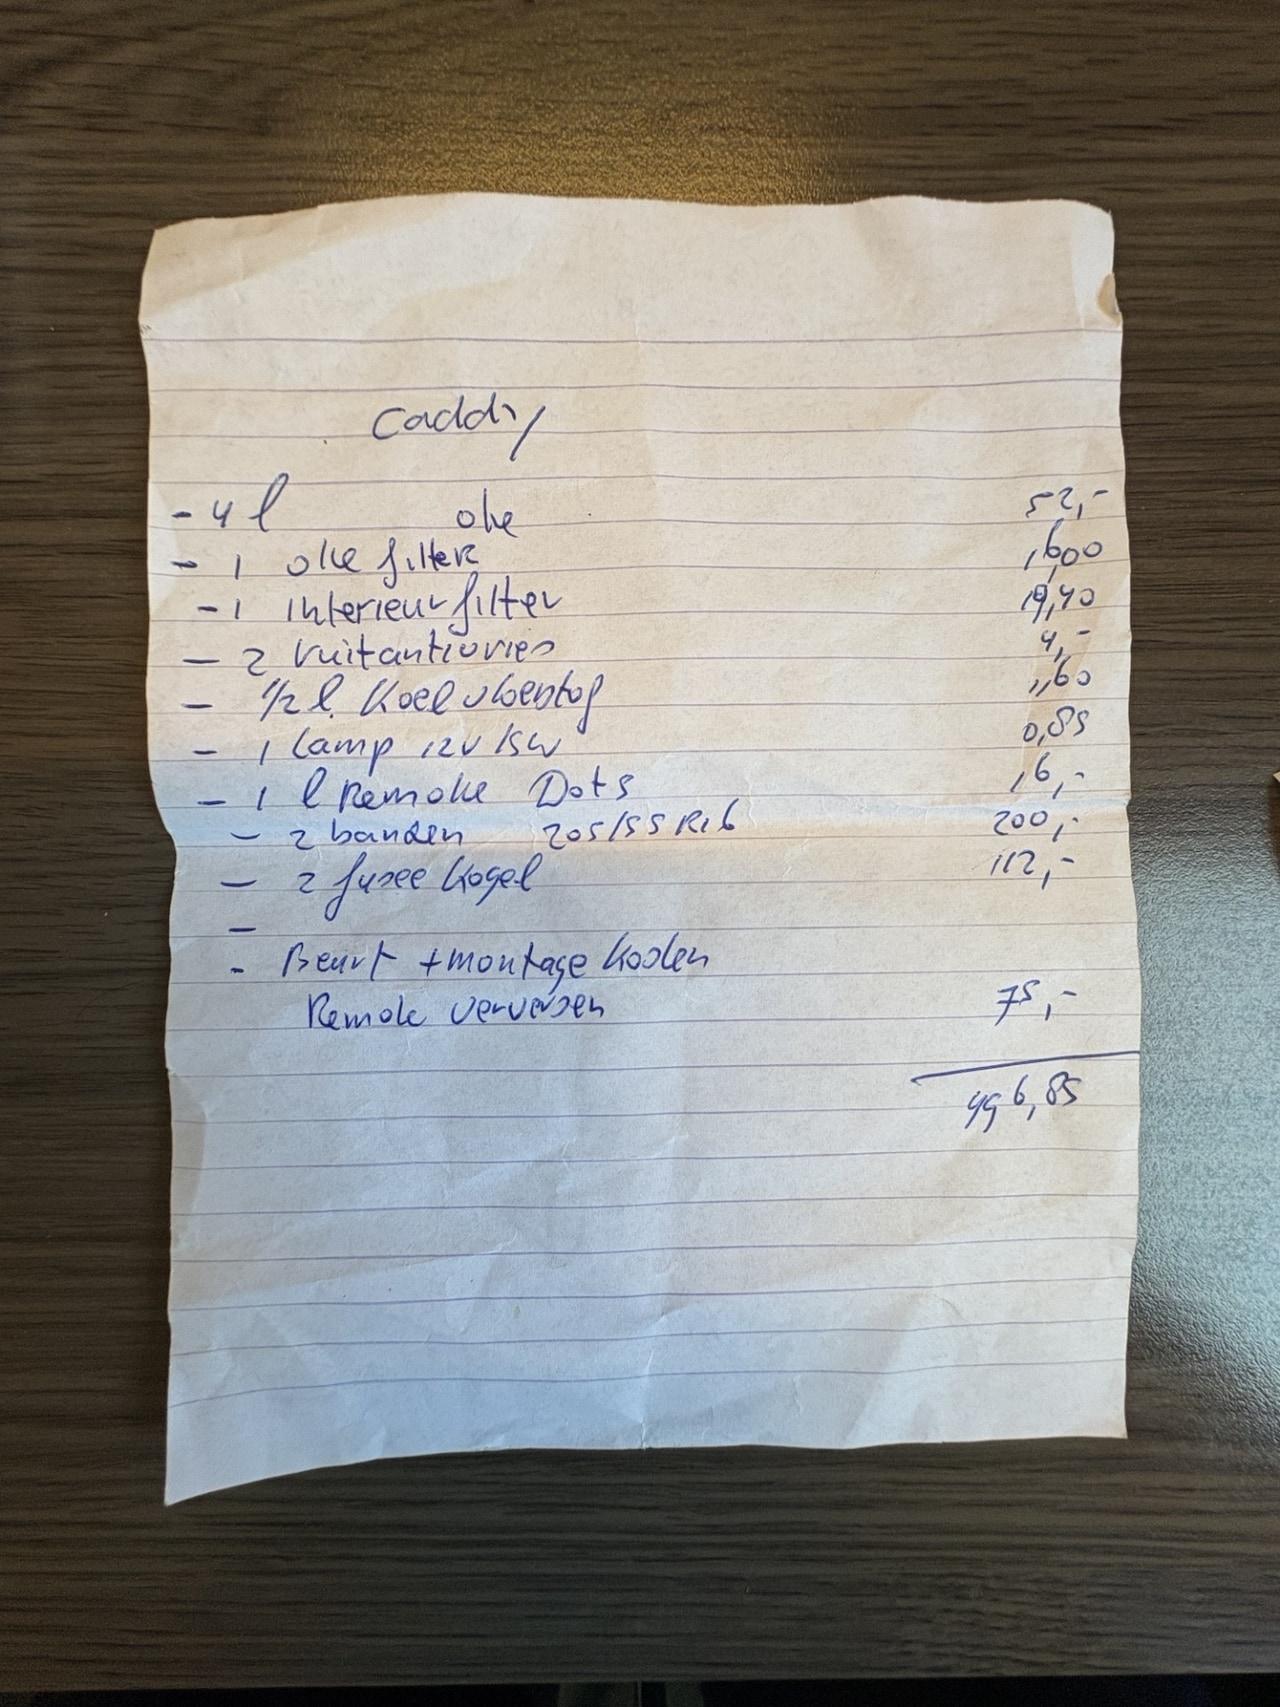 Caddy
- 4 l olie 52,-
- 1 olie filter 16,00
- 1 interieurfilter 19,40
- 2 ruitantivries 4,-
- 1/2 l. Koelvloeistof 1,60
- 1 lamp 12V 15W 0,85
- 1 l Remolie Dot 5 16,-
- 2 banden 205/55 R16 200,-
- 2 fusee Kogel 112,-
-
- Beurt + montage kosten
Remolie verversen 75,-
496,85